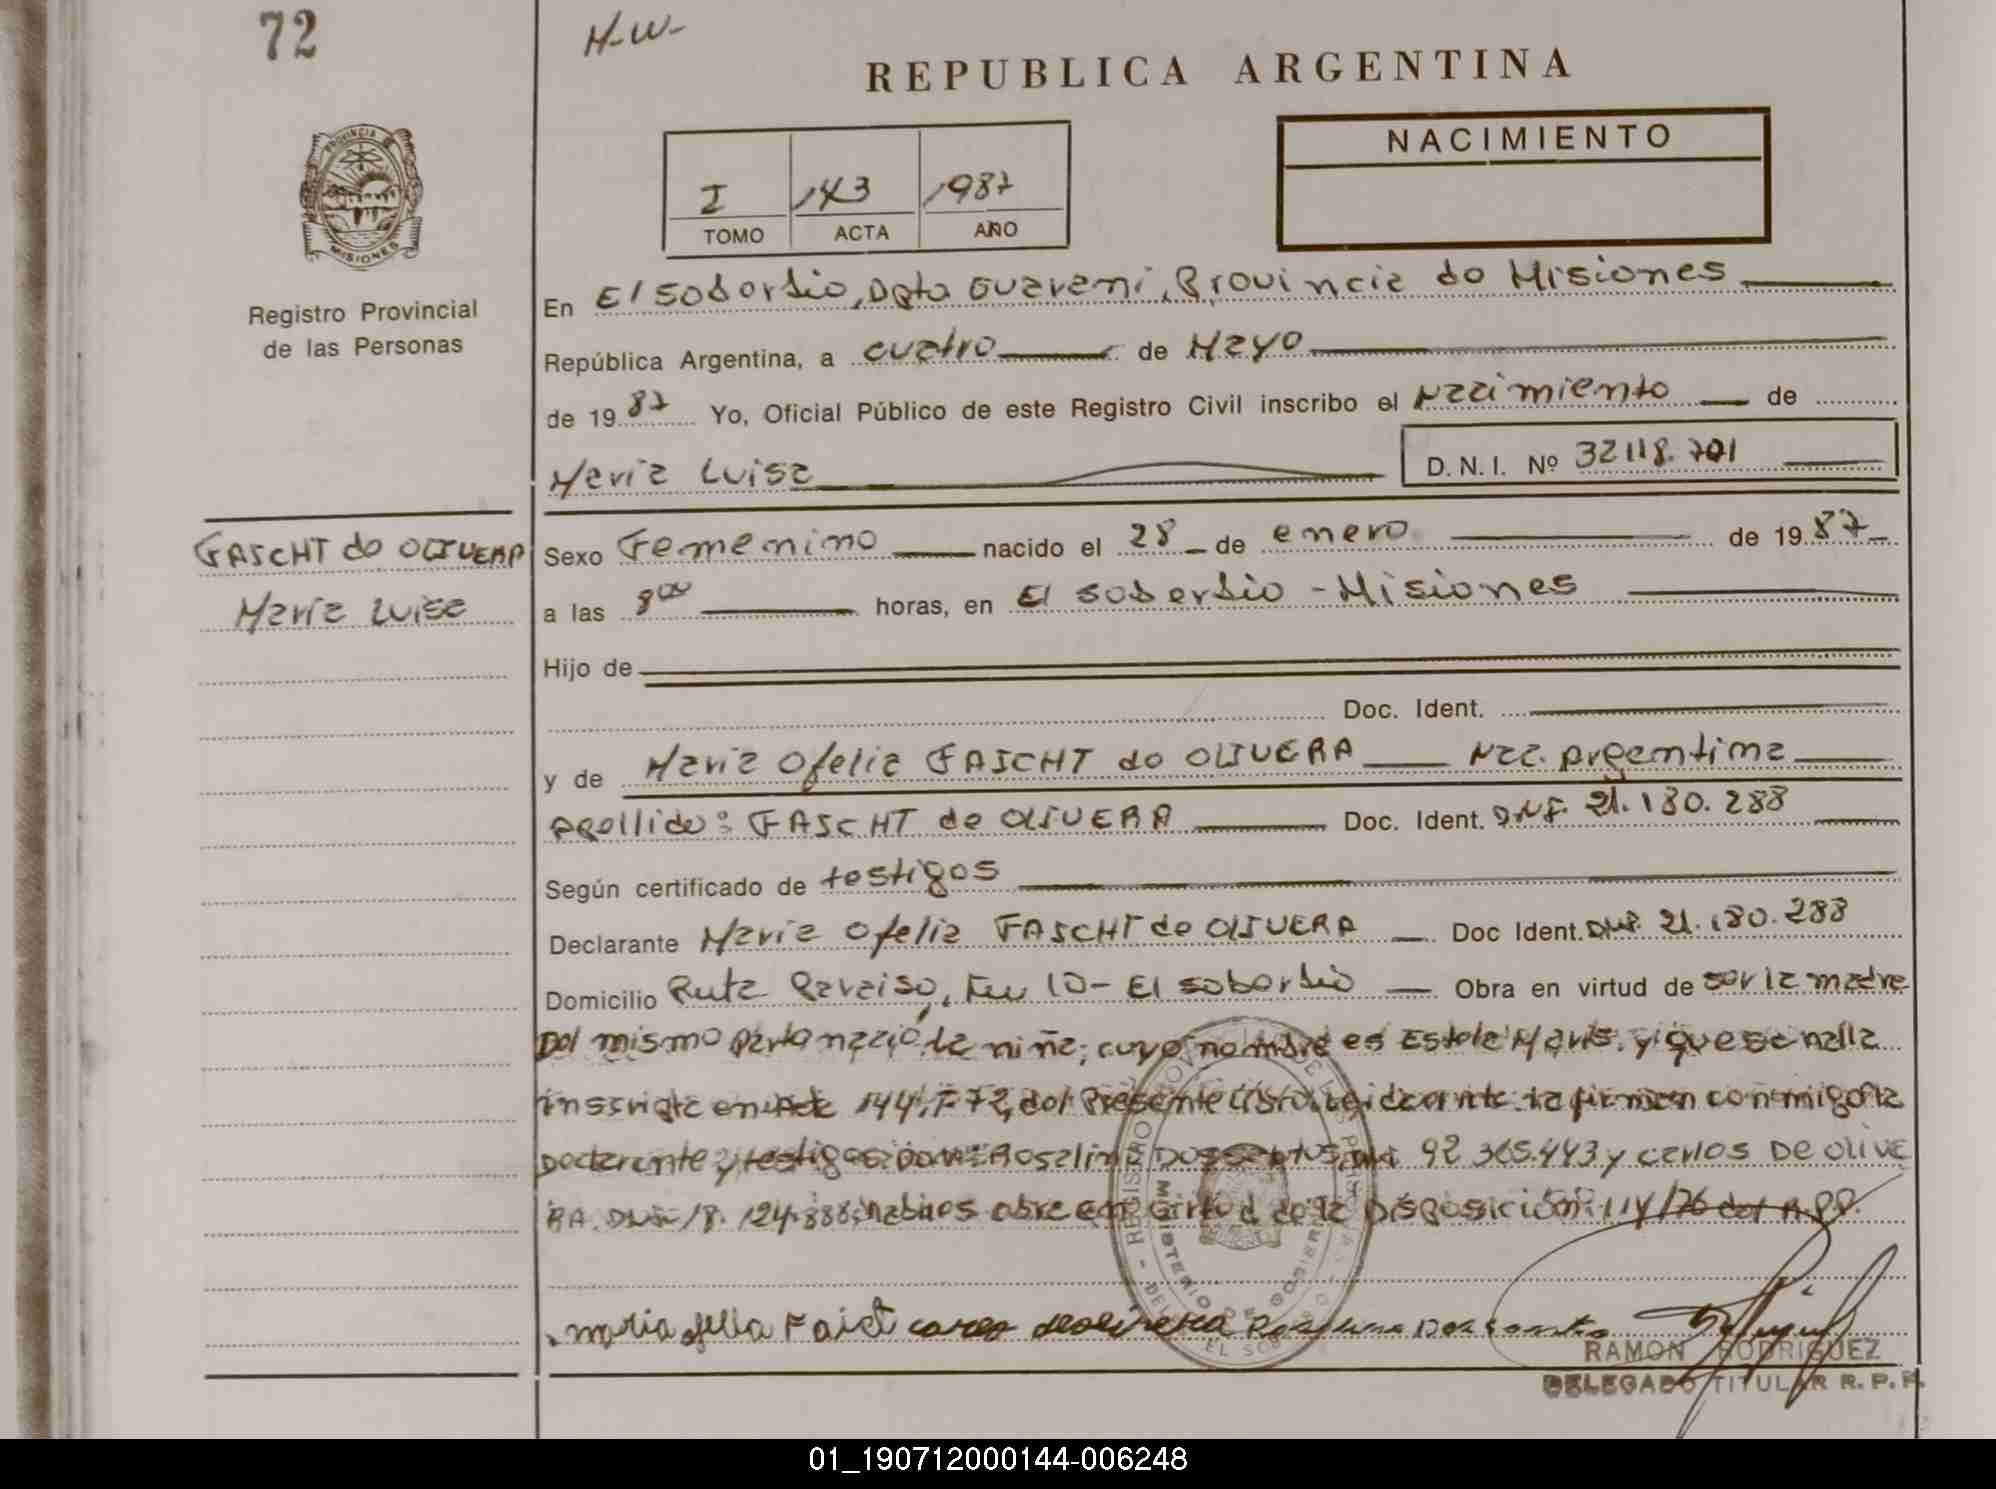 72
H-W-
REPUBLICA ARGENTINA
PROVINCIA
MISIONES
Registro Provincial
de las Personas
I 143 1987
TOMO ACTA AÑO
NACIMIENTO
En El Soberbio, Dpto Guarani, Provincia de Misiones
República Argentina, a cuatro de Mayo
de 19 87 Yo, Oficial Público de este Registro Civil inscribo el Nacimiento de
Maria Luisa D.N.I. Nº 32118.701
FASCHT de OLIVERA
Maria Luisa
Sexo Femenino nacido el 28 de enero de 19 87
a las 8 00 horas, en El Soberbio - Misiones
Hijo de
Doc. Ident.
y de Maria Ofelia FASCHT de OLIVERA Nac. Argentina
apellido: FASCHT de OLIVERA Doc. Ident. DNI. 21.180.288
Según certificado de testigos
Declarante Maria Ofelia FASCHT de OLIVERA Doc Ident. DNI. 21.180.288
Domicilio Ruta Paraiso, Km 10 - El soberbio Obra en virtud de ser la madre
Del mismo parto nació la niña, cuyo nombre es Estela Maris, y que se halla
inscripta en Acta 144, F 72, del Presente Libro. Leida el acta la firman conmigo la
Declarante y testigos Rosalina Dos Santos, 92.365.443 y Carlos De Olive
RA. DNI. 18.124.888, habiles obra en virtud de la Disposición 114/76 del R.P.P.
maria ofelia Faict carlo deolivera Rosalina Dos Santos
REGISTRO PROVINCIAL DE LAS PERSONAS
MINISTERIO DE GOBIERNO
RAMON RODRIGUEZ
DELEGADO TITULAR R. P. P.
01_190712000144-006248